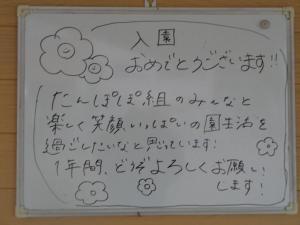 入園
おめでとうございます!!
たんぽぽ組のみんなと
楽しく笑顔いっぱいの園生活を
過ごしたいなと思っています!
1年間、どうぞよろしくお願い
します!